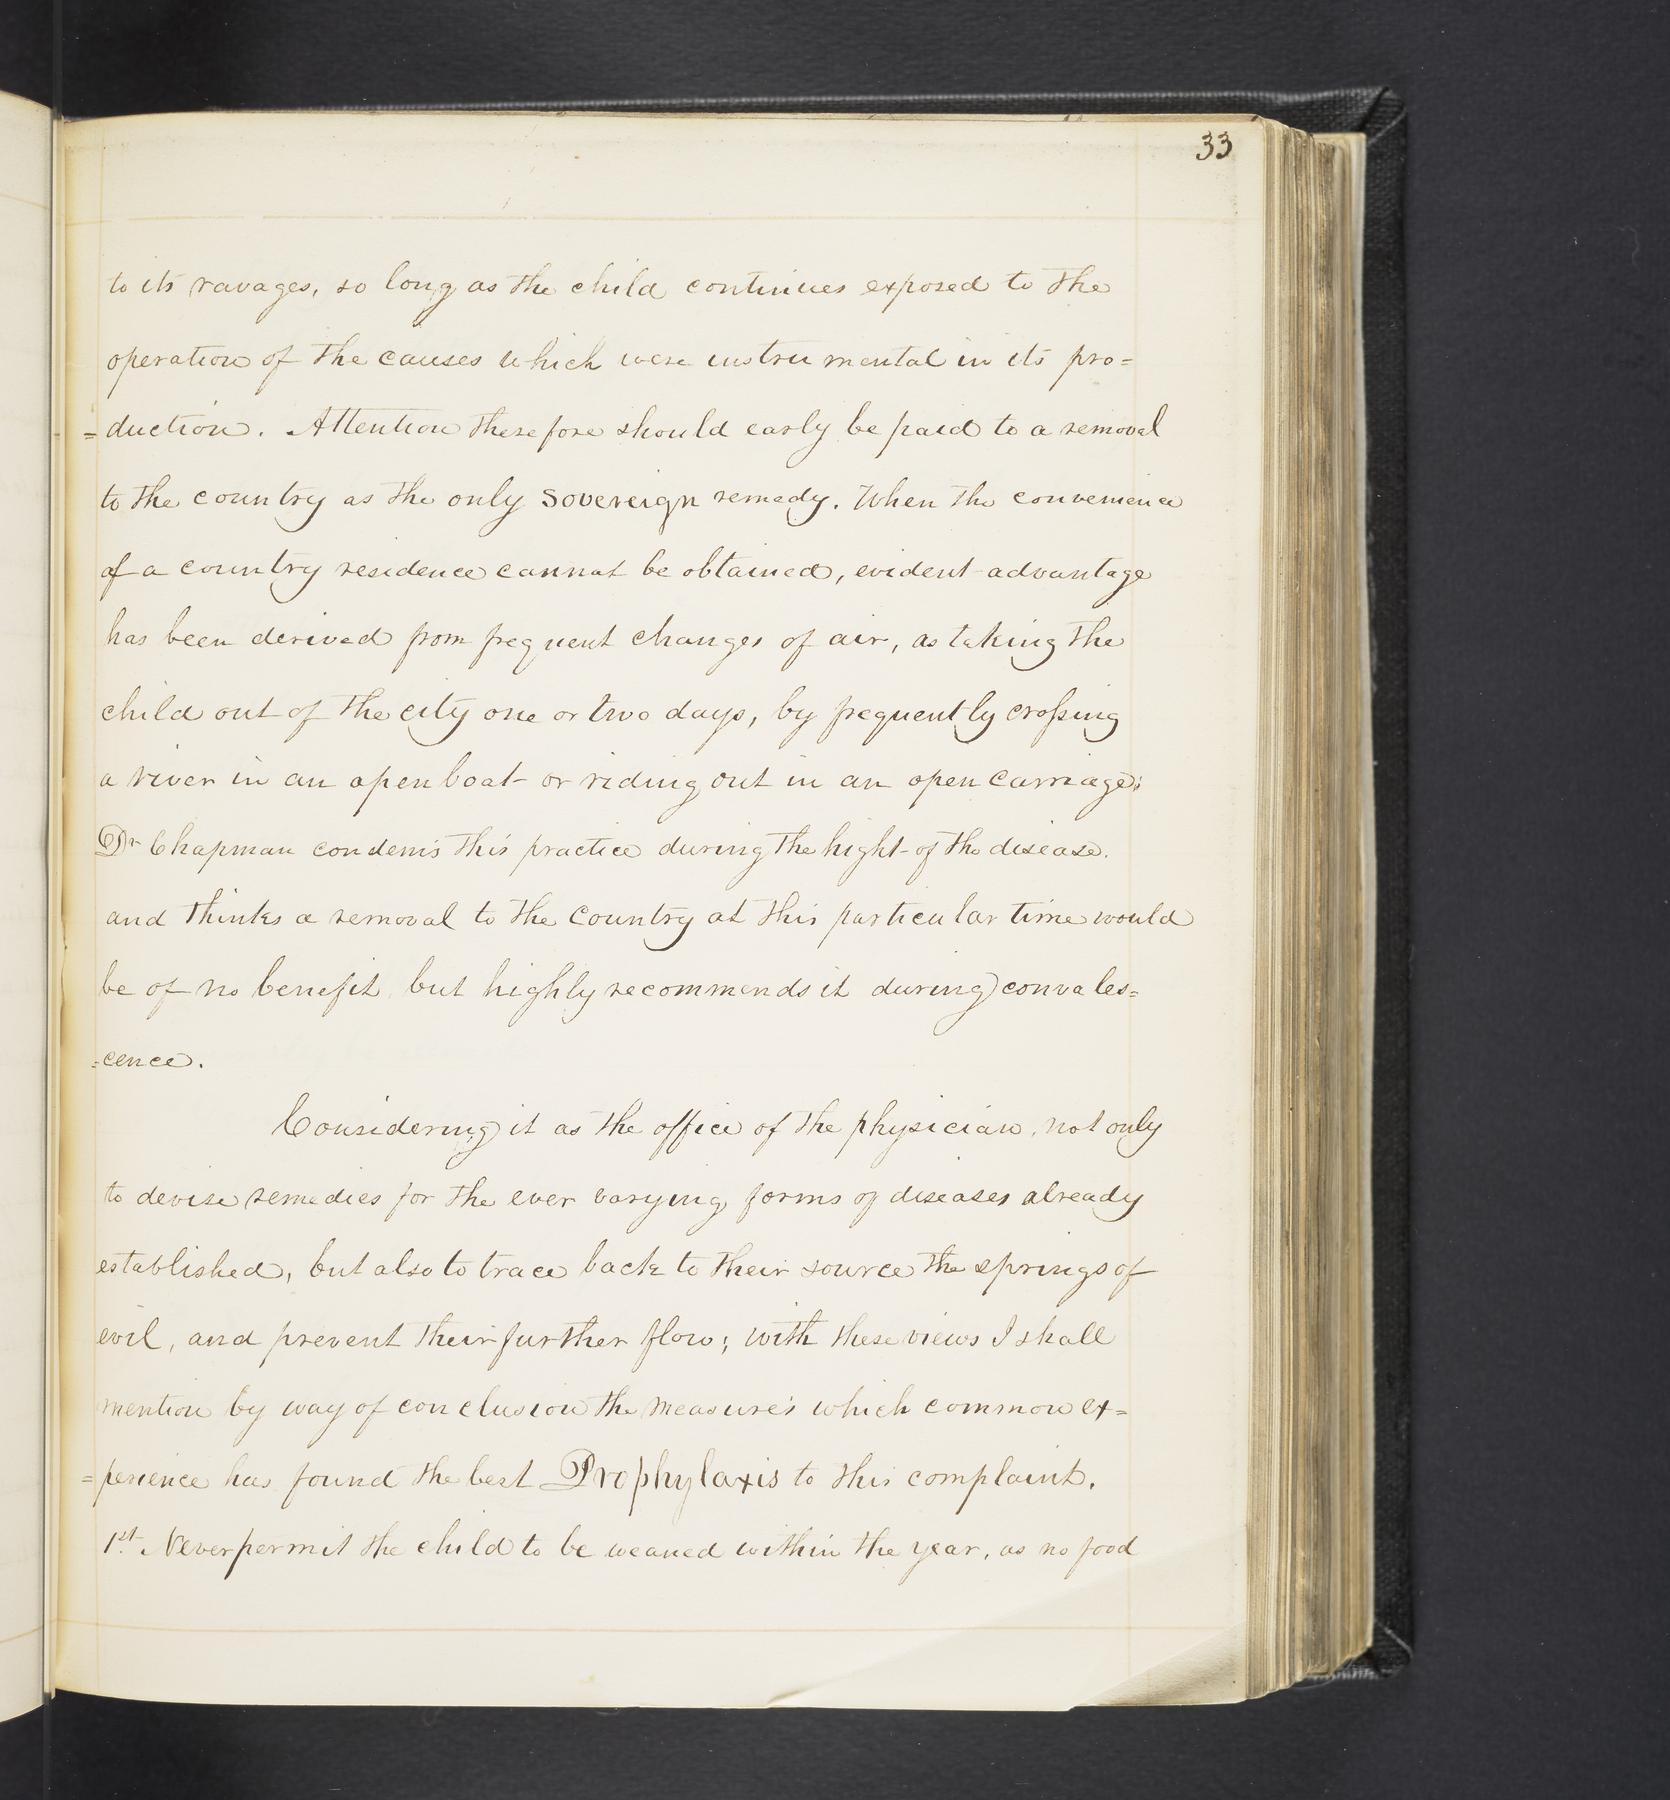 33
to its ravages, so long as the child continues exposed to the
operation of the causes which were instrumental in its pro=
=duction. Attention therefore should early be paid to a removal
to the country as the only sovereign remedy. When the convenience
of a country residence cannot be obtained, evident advantage
has been derived from frequent changes of air, as taking the
child out of the city one or two days, by frequently croſsing
a river in an open boat or riding out in an open carriage;
Dr Chapman condems this practice during the hight of the disease.
and thinks a removal to the country at this particular time would
be of no benefit but highly recommends it during convales=
=cence.
Considering it as the office of the physician, not only
to devise remedies for the ever varying forms of diseases already
established, but also to trace back to their source the springs of
evil, and prevent their further flow; with these views I shall
mention by way of conclusion the measures which common ex=
=perience has found the best Prophylaxis to this complaint.
1st. Never permit the child to be weaned within the year, as no food